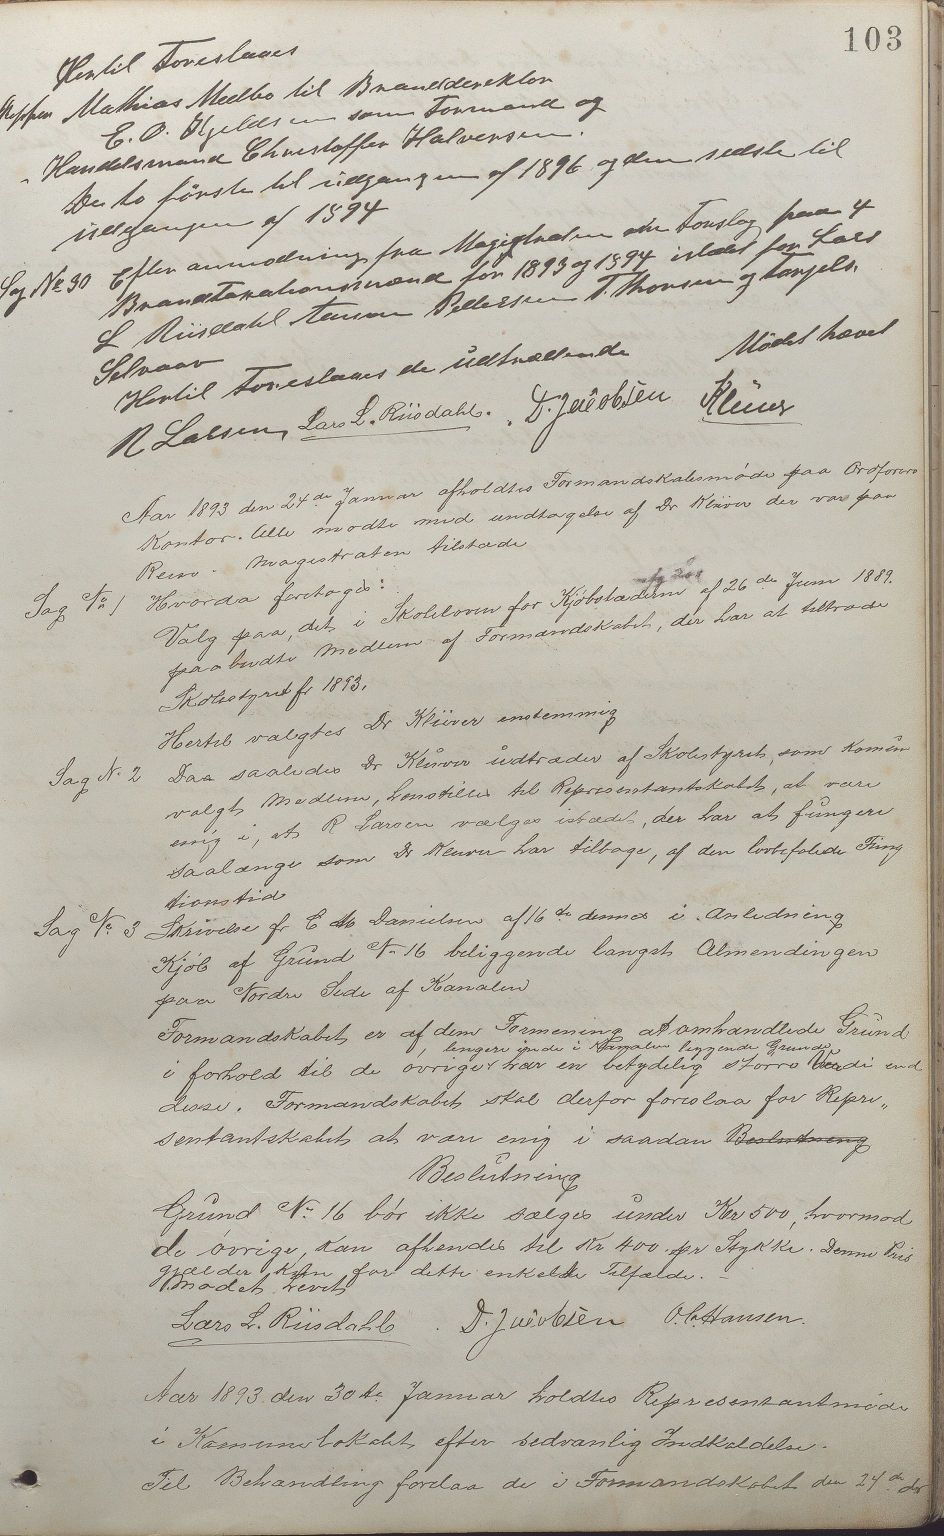 103
Hertil Foreslaaes
Mathias Medbo til Branddirektør
E. O. Kjeldsen som Formand og
Handelsmand Christoffer Halversen.
De to første til udgangen af 1896 og den sidste til
udgangen af 1894
Sag No 30 Efter anmodning fra Magistraten om Forslag paa 4
Brandtaxationsmænd for 1893 og 1894 istdet for Lars
L Riisdahl Aanon Pedersen T. Thorsen og Torjels.
Selvaav
Hertil Foreslaaes de üdtrædende Mødet hævet
R Larsen, Lars L. Riisdahl. D. Jacobsen Klüwer
Aar 1893 den 24de Januar afholdtes Formandskabsmøde paa Ordførers
Kontor. Alle mødte med undtagelse af Dr Klüver der var paa
Reise. Magistraten tilstæde
Sag No 1 Hvorda foretoges:
Valg paa, det i Skoleloven for Kjøbstæderne af 26de Juni 1889.
paabudte Medlem af Formandskabet, der har at tiltræde
Skolestyret fr 1893.
Hertil valgtes Dr Klüver enstemmig
Sag No 2 Daa saaledes Dr Klüver udtræder af Skolestyret, som Komün
valgt Medlem, henstilles til Representantskabet, at være
enig i, at R Larsen vælges istædet, der har at fungere
saalænge som Dr Klüver har tilbage, af den lovbefalede Füng
tionstid
Sag No 3 Skrivelse fr E M Danielsen af 16de dennes i Anledning
Kjöb af Grund No 16 beliggende langst Almendingen
paa Nordre Side af Kanalen
Formandskabet er af dem Formening at omhandlede Gründ
, lengere inde i Kanalen liggende Grunde
i forhold til de øvrige har en betydelig større Værdi end
disse. Formandskabet skal derfor foreslaa for Repre„
sentantskabet at være enig i saadan Beslutning
Beslütning
Gründ No 16 bør ikke sælges ünder Kr 500, hvormod
de øvrige, kan afhendes til Kr 400 pr Stykke. Denne Pris
gjælder kun for dette enkelte Tilfælde. –
Mødet hævet
Lars L. Riisdahl. D. Jacobsen O. C. Hansen.
Aar 1893 den 30te Januar holdtes Representantmøde
i Komunelokalet efter sedvanlig Indkaldelse.
Til Behandling forelaa de i Formandskabet den 24de ds